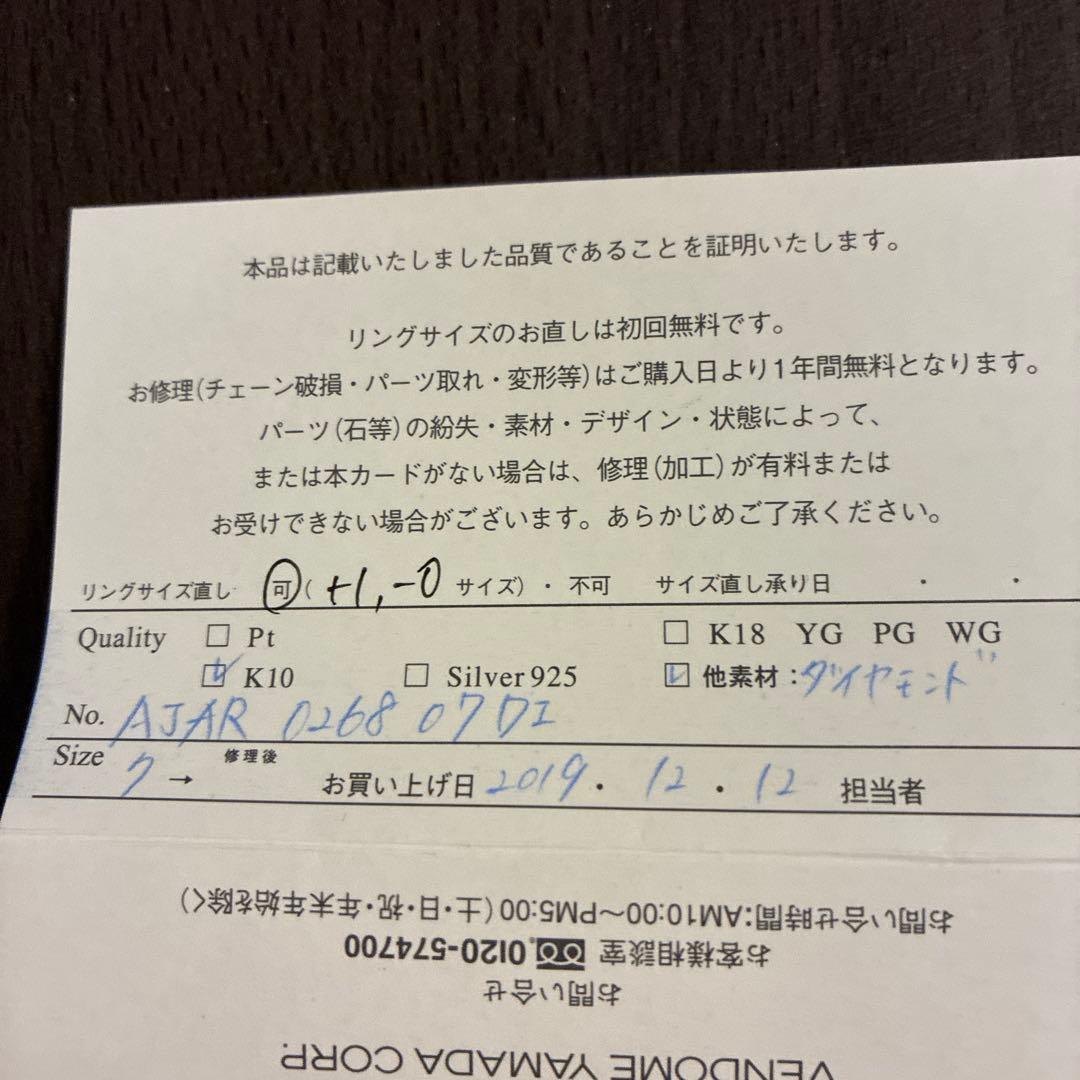 本品は記載いたしました品質であることを証明いたします。
リングサイズのお直しは初回無料です。
お修理(チェーン破損・パーツ取れ・変形等)はご購入日より1年間無料となります。
パーツ(石等)の紛失・素材・デザイン・状態によって、
または本カードがない場合は、修理(加工)が有料または
お受けできない場合がございます。あらかじめご了承ください。
リングサイズ直し 可( +1, -0 サイズ)・不可 サイズ直し承り日 ・ ・
Quality □ Pt □ K18 YG PG WG
☑ K10 □ Silver925 ☑ 他素材:ダイヤモンド
No. AJAR 0268 07 DI
Size 7 → 修理後 お買い上げ日 2019・12・12 担当者
VENDOME YAMADA CORP.
お問い合せ
お客様相談室 0120-574700
お問い合せ時間:AM10:00〜PM5:00(土・日・祝・年末年始を除く)